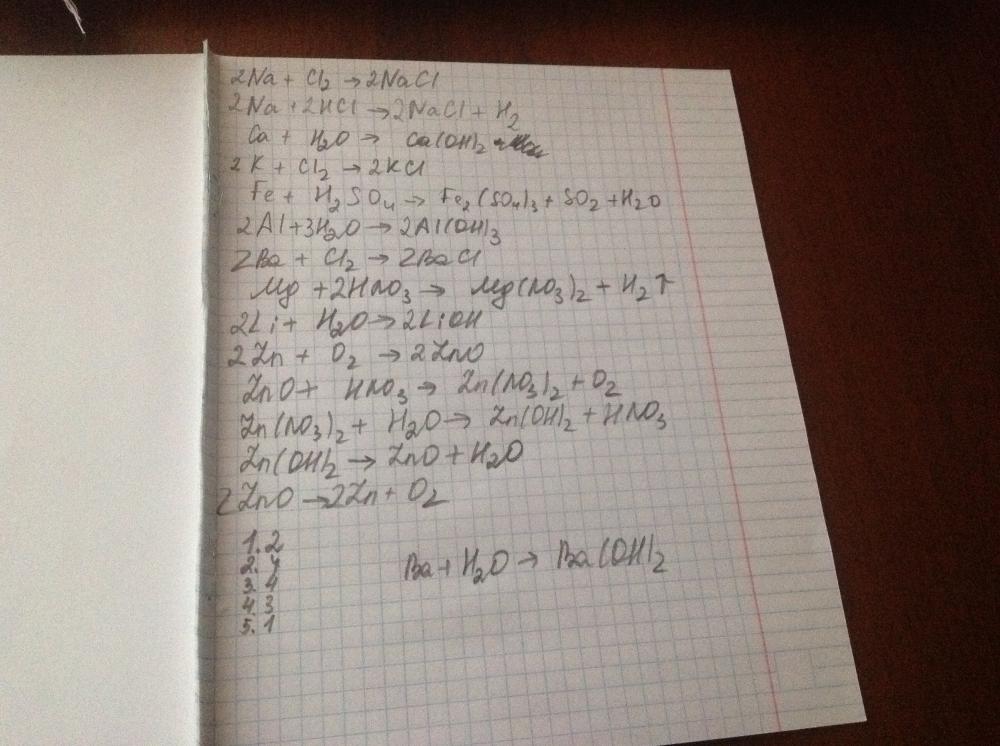 2Na + Cl2 → 2NaCl
2Na + 2HCl → 2NaCl + H2
Ca + H2O → Ca(OH)2
2K + Cl2 → 2KCl
Fe + H2SO4 → Fe2(SO4)3 + SO2 + H2O
2Al + 3H2O → 2Al(OH)3
2Ba + Cl2 → 2BaCl
Mg + 2HNO3 → Mg(NO3)2 + H2↑
2Li + H2O → 2LiOH
2Zn + O2 → 2ZnO
ZnO + HNO3 → Zn(NO3)2 + O2
Zn(NO3)2 + H2O → Zn(OH)2 + HNO3
Zn(OH)2 → ZnO + H2O
2ZnO → 2Zn + O2
1. 2
2. 4
3. 4
4. 3
5. 1
Ba + H2O → Ba(OH)2